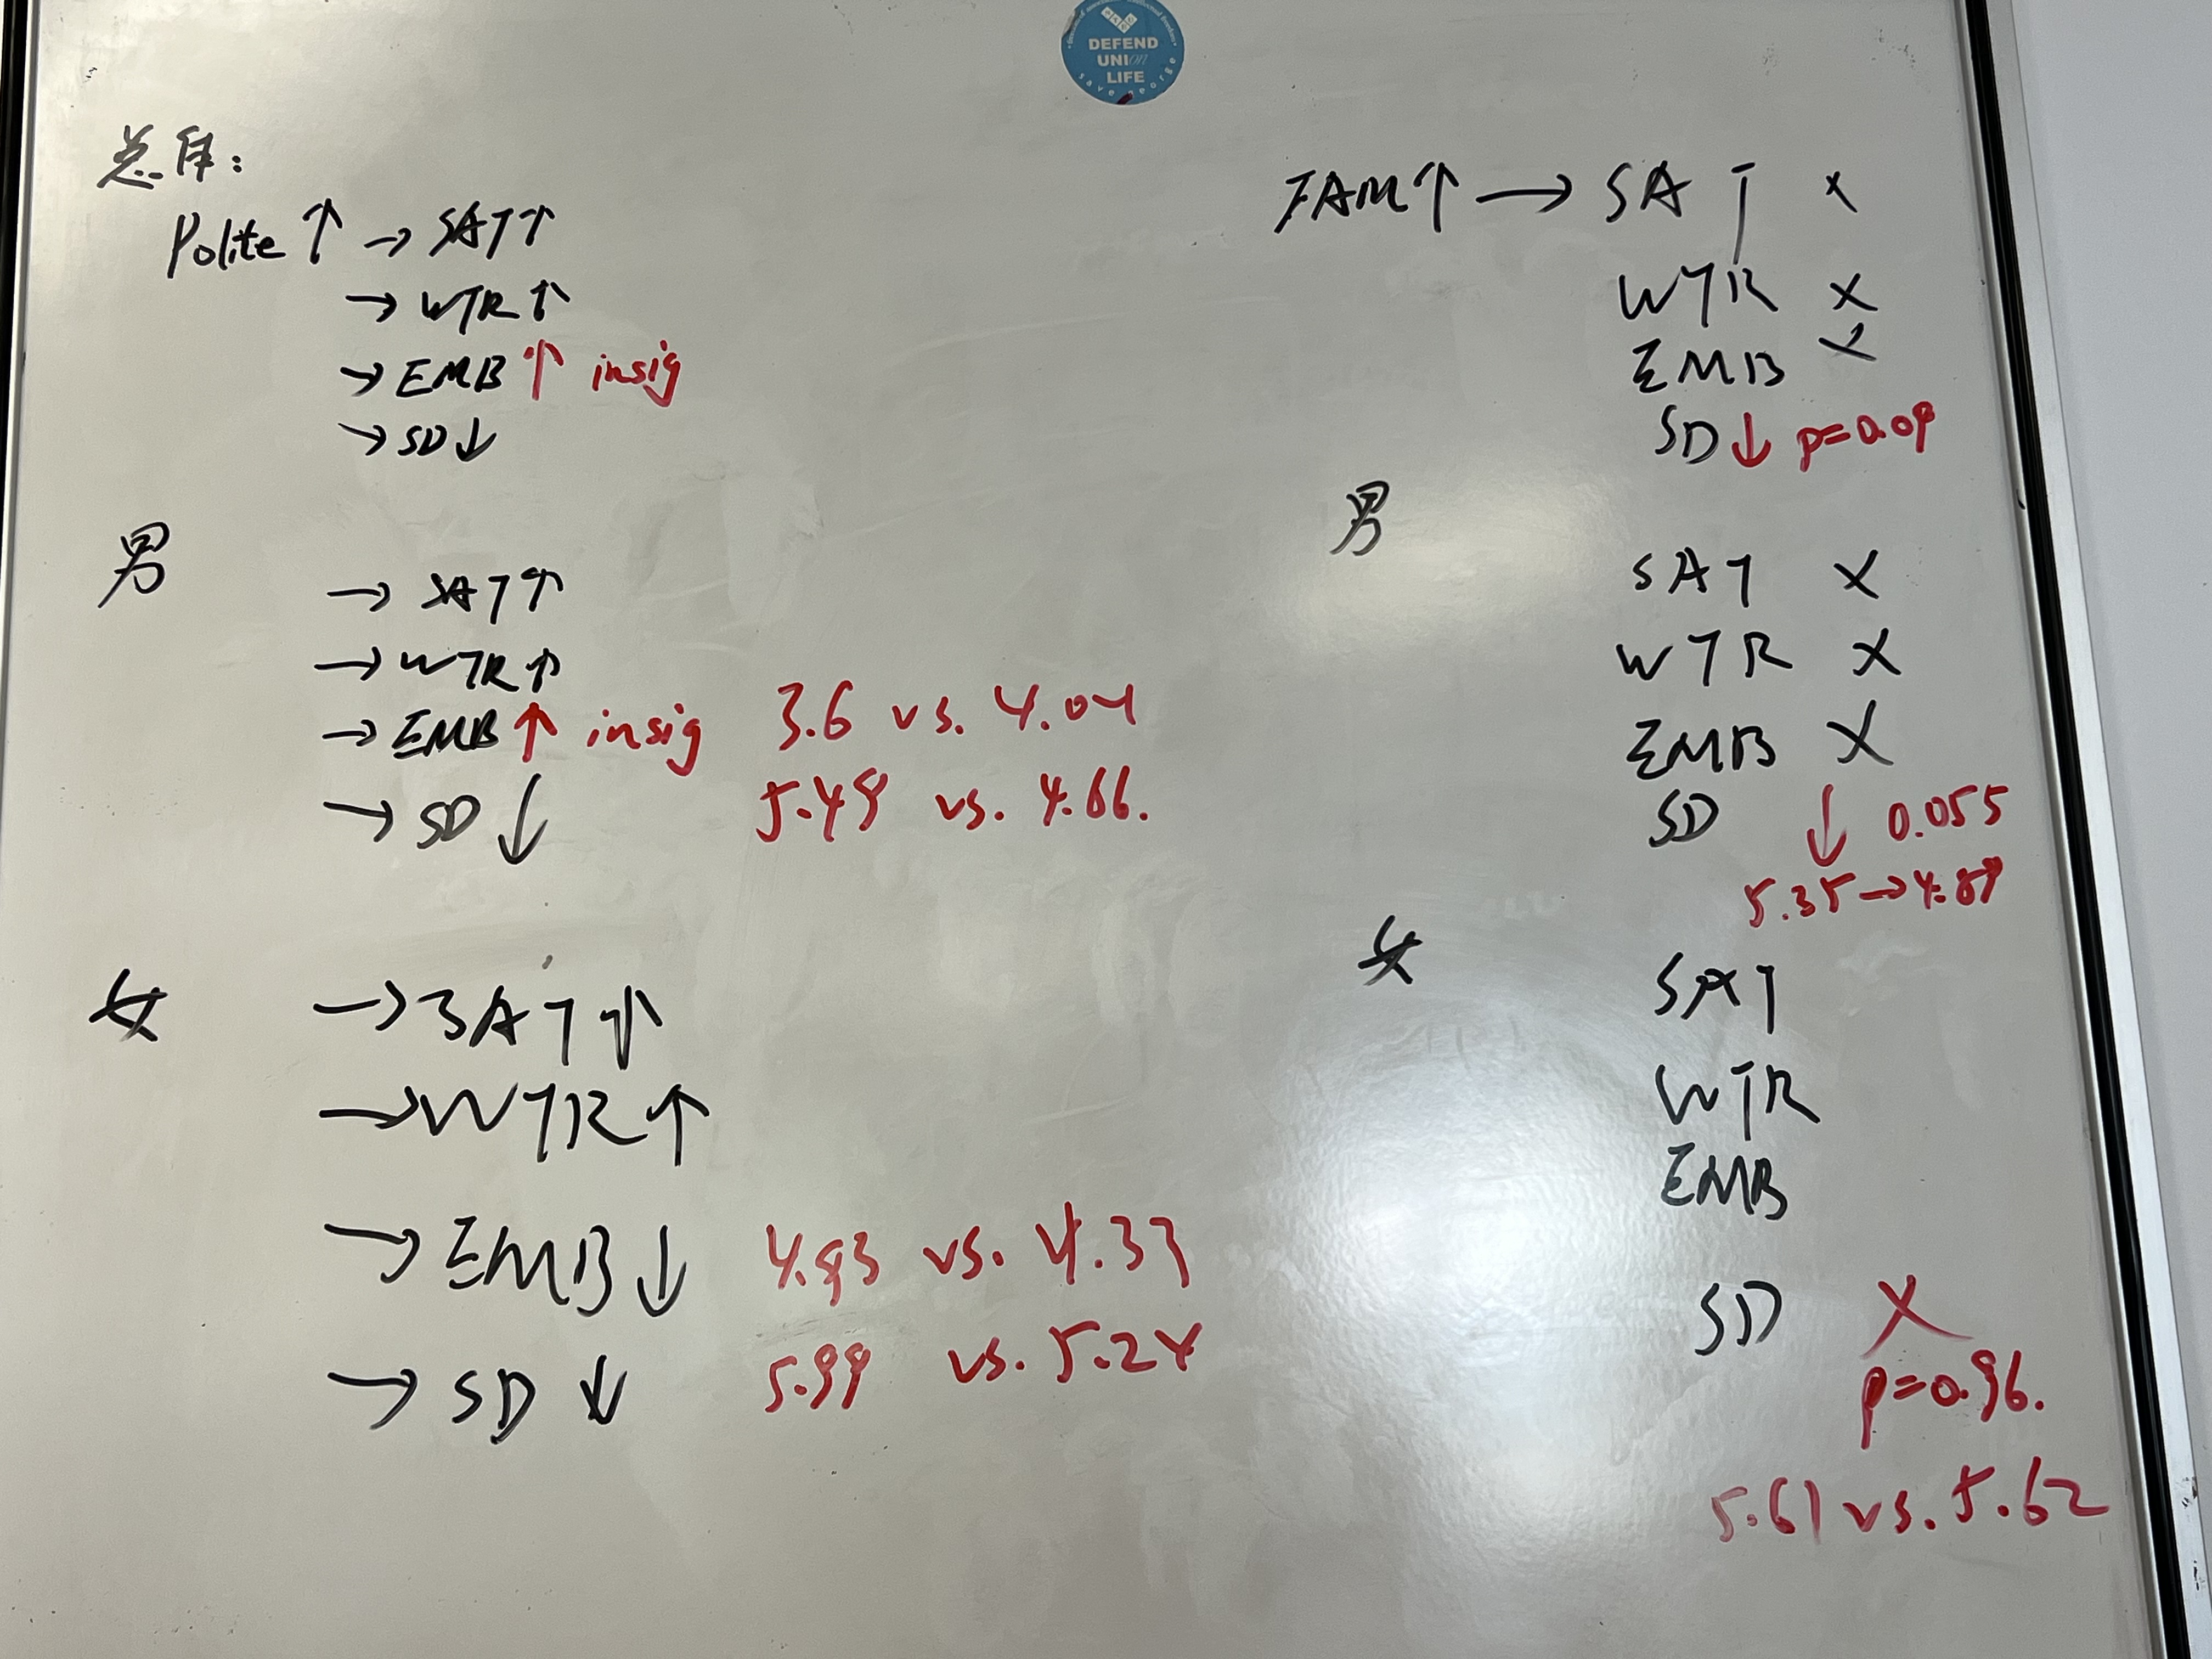 DEFEND
UNION
LIFE
save george
总体:
Polite ↑ → SAT ↑
→ WTR ↑
→ EMB ↑ insig
→ SD ↓
男
→ SAT ↑
→ WTR ↑
→ EMB ↑ insig 3.6 vs. 4.04
→ SD ↓ 5.49 vs. 4.66.
女
→ SAT ↑
→ WTR ↑
→ EMB ↓ 4.93 vs. 4.33
→ SD ↓ 5.99 vs. 5.24
FAM ↑ → SAT ×
WTR ×
EMB ×
SD ↓ p=0.09
男
SAT ×
WTR ×
EMB ×
SD ↓ 0.055
5.35 → 4.89
女
SAT
WTR
EMB
SD ×
p=0.96.
5.61 vs. 5.62